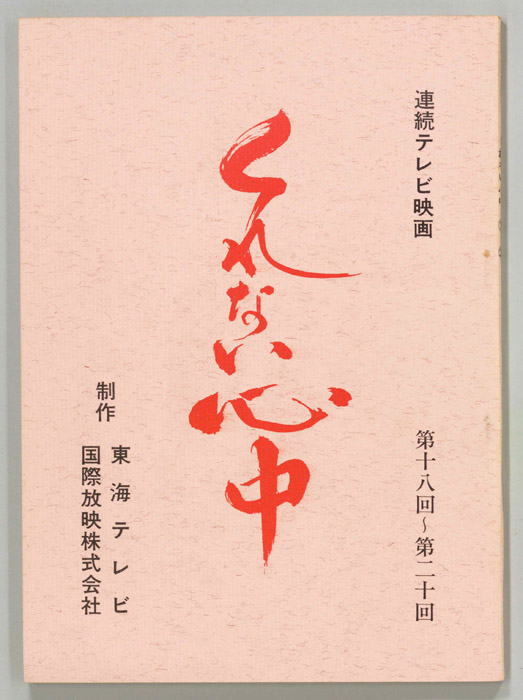 連続テレビ映画
第十八回~第二十回
くれない心中
制作
東海テレビ
国際放映株式会社